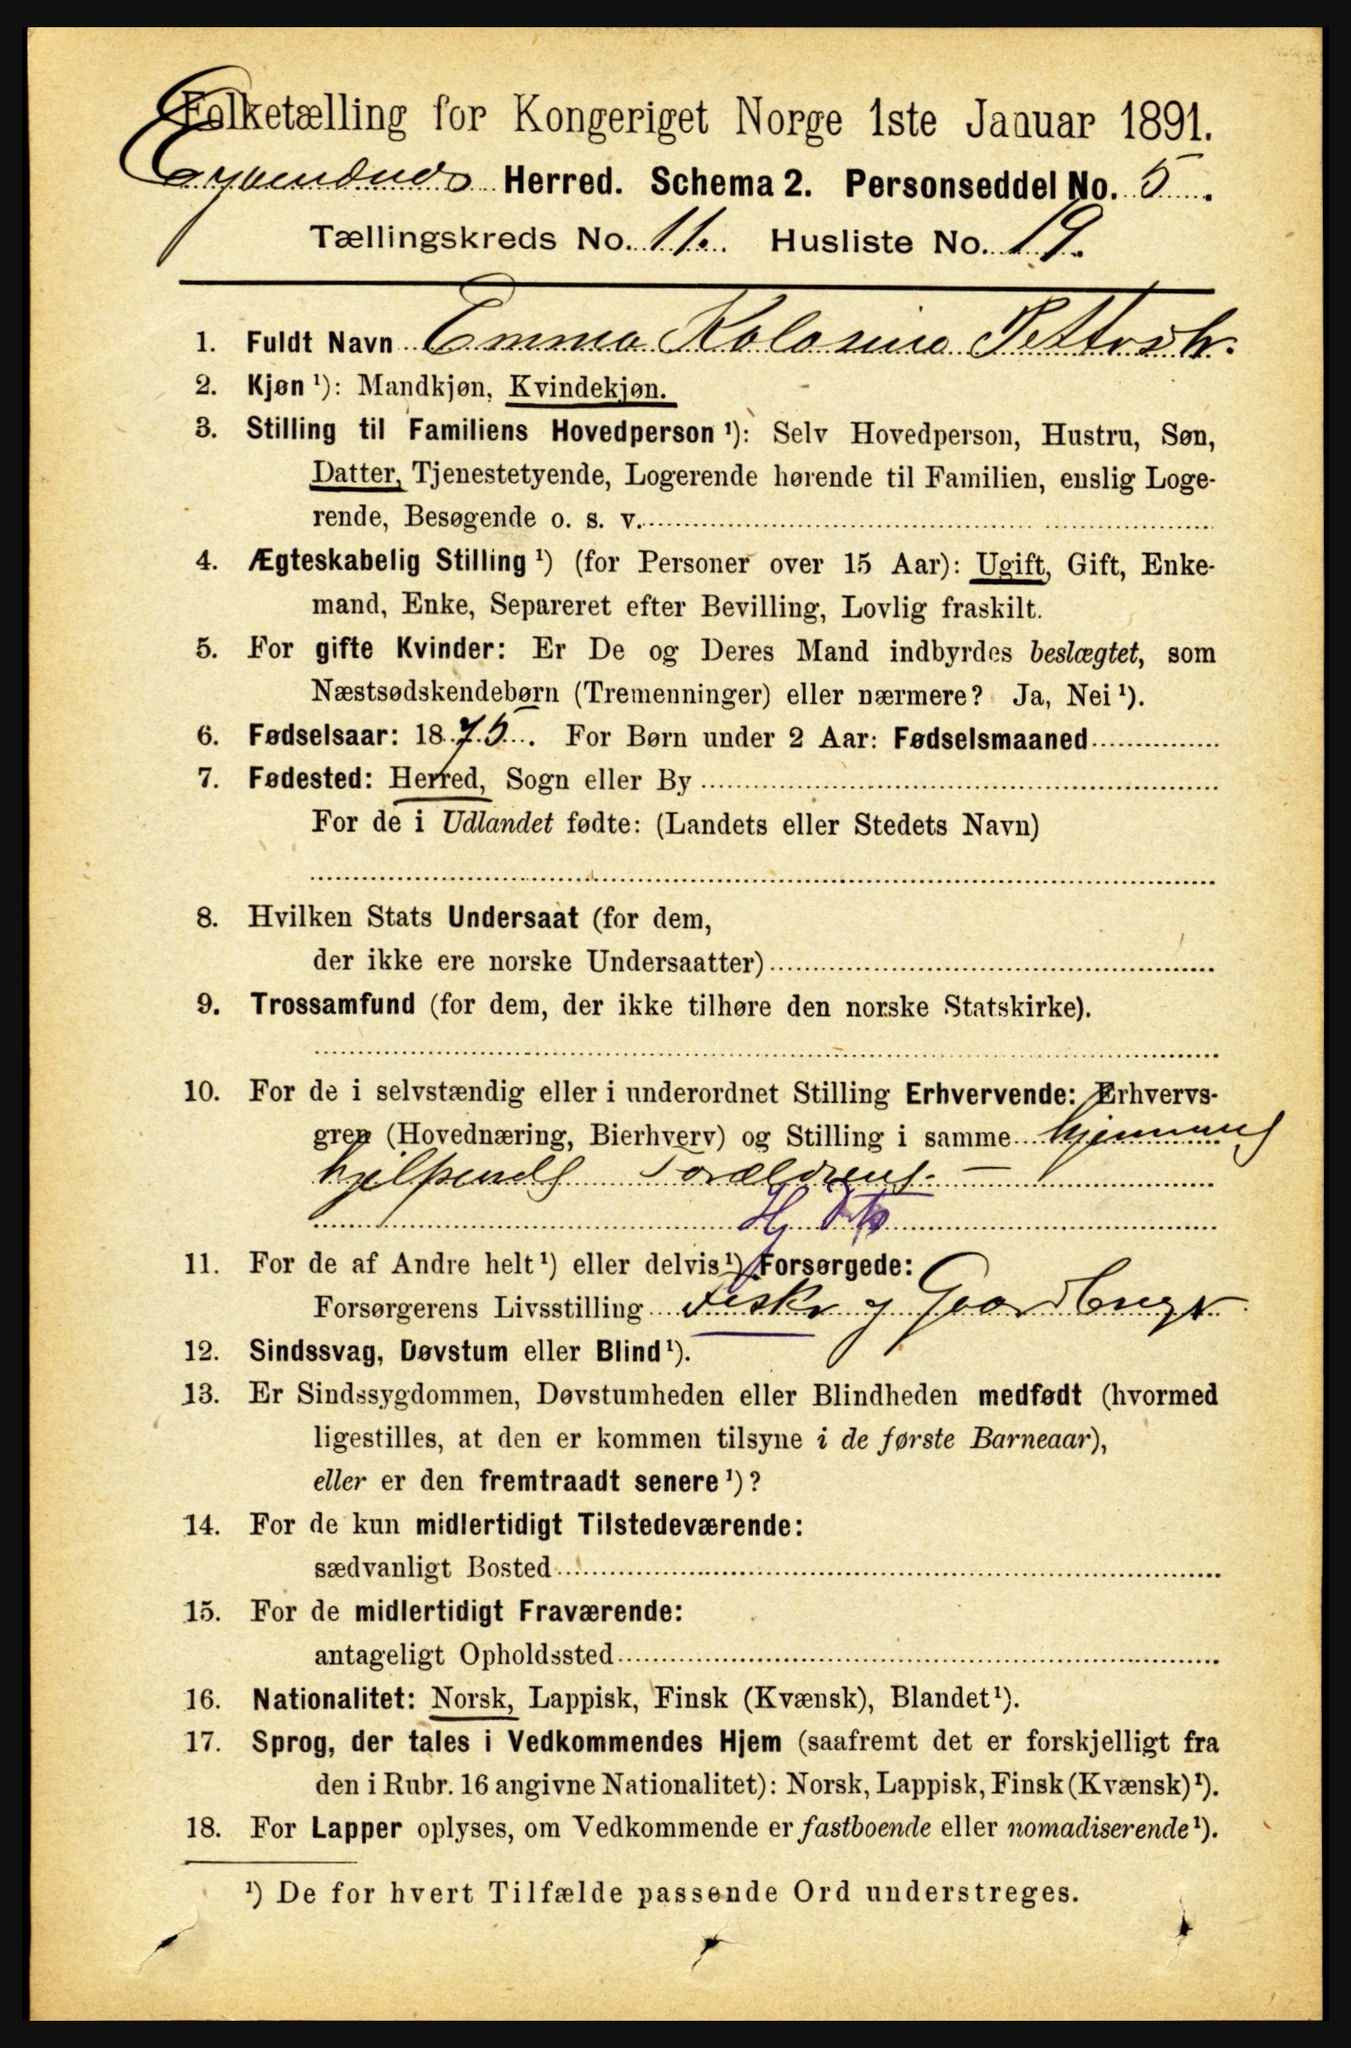 Folketælling for Kongeriget Norge 1ste Januar 1891.
Egvendnes Herred. Schema 2. Personseddel No. 5.
Tællingskreds No. 11. Husliste No. 19.
1. Fuldt Navn Emma Kolosine Pettersdtr.
2. Kjøn ¹): Mandkjøn, Kvindekjøn.
3. Stilling til Familiens Hovedperson ¹): Selv Hovedperson, Hustru, Søn,
Datter, Tjenestetyende, Logerende hørende til Familien, enslig Loge-
rende, Besøgende o. s. v.
4. Ægteskabelig Stilling ¹) (for Personer over 15 Aar): Ugift, Gift, Enke-
mand, Enke, Separeret efter Bevilling, Lovlig fraskilt.
5. For gifte Kvinder: Er De og Deres Mand indbyrdes beslægtet, som
Næstsødskendebørn (Tremenninger) eller nærmere? Ja, Nei ¹).
6. Fødselsaar: 1875. For Børn under 2 Aar: Fødselsmaaned
7. Fødested: Herred, Sogn eller By
For de i Udlandet fødte: (Landets eller Stedets Navn)
8. Hvilken Stats Undersaat (for dem,
der ikke ere norske Undersaatter)
9. Trossamfund (for dem, der ikke tilhøre den norske Statskirke).
10. For de i selvstændig eller i underordnet Stilling Erhvervende: Erhvervs-
gren (Hovednæring, Bierhverv) og Stilling i samme hjemme
hjelpende Forældrene. —
Hj
11. For de af Andre helt ¹) eller delvis ¹) Forsørgede:
Forsørgerens Livsstilling Fisker og Gaardbruger
12. Sindssvag, Døvstum eller Blind ¹).
13. Er Sindssygdommen, Døvstumheden eller Blindheden medfødt (hvormed
ligestilles, at den er kommen tilsyne i de første Barneaar),
eller er den fremtraadt senere ¹)?
14. For de kun midlertidigt Tilstedeværende:
sædvanligt Bosted
15. For de midlertidigt Fraværende:
antageligt Opholdssted
16. Nationalitet: Norsk, Lappisk, Finsk (Kvænsk), Blandet ¹).
17. Sprog, der tales i Vedkommendes Hjem (saafremt det er forskjelligt fra
den i Rubr. 16 angivne Nationalitet): Norsk, Lappisk, Finsk (Kvænsk) ¹).
18. For Lapper oplyses, om Vedkommende er fastboende eller nomadiserende ¹).
¹) De for hvert Tilfælde passende Ord understreges.